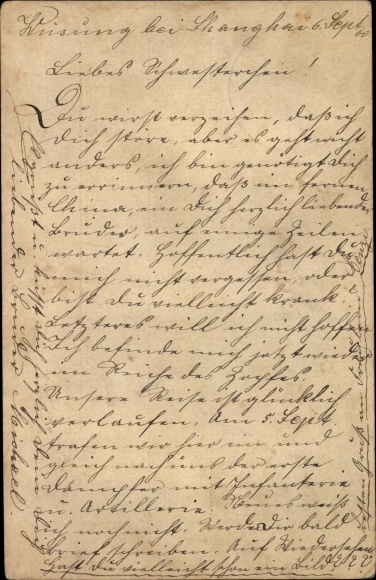 Wusung bei Shanghai 6. Sept. 00
Liebes Schwesterchen!
Du wirst verzeihen, daß ich
Dich störe, aber es geht nicht
anders, ich bin genötigt Dich
zu errinnern, daß im fernen
China, ein Dich herzlich liebender
Bruder, auf einige Zeilen
wartet. Hoffentlich hast Du
mich nicht vergessen, oder
bist Du vielleicht krank.
Letzteres will ich nicht hoffen.
Ich befinde mich jetzt wieder
im Reiche des Zopfes.
Unsere Reise ist glücklich
verlaufen. Am 5. Sept.
trafen wir hier ein und
gleich nach uns der erste
Dampfer mit Infanterie
u. Artillerie. Neues weiß
ich noch nicht. Werde Dir bald
Brief schreiben. Auf Wiedersehen
Hast Du vielleicht schon ein Bild
Es grüßt u. küßt Dich herzlich Dein Dich
liebender Bruder Michael.
besten Gruß an